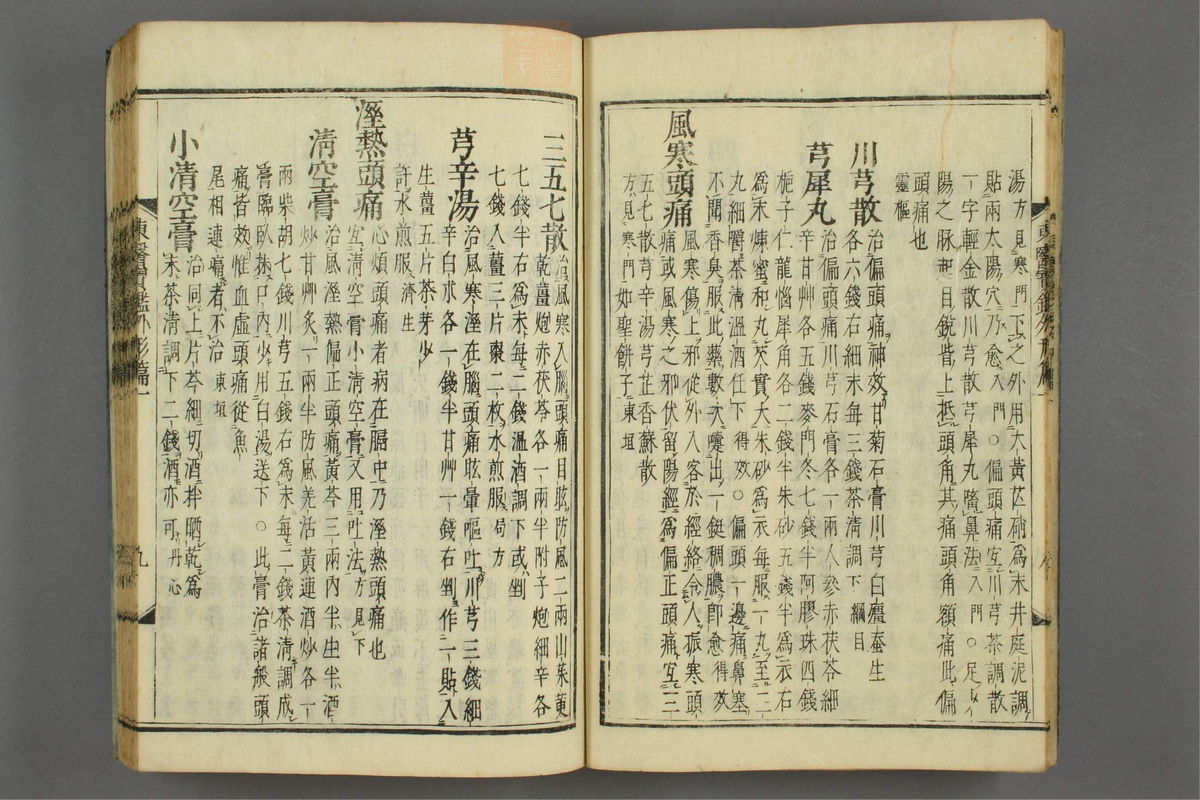 湯方見寒門下之外用大黃芒硝爲末井庭泥調
貼兩太陽穴乃愈入門○偏頭痛宜川芎茶調散
一字輕金散川芎散芎犀丸㗜鼻法入門○足少
陽之脉起目銳眥上抵頭角其痛頭角額痛此偏
頭痛也
靈樞
川芎散治偏頭痛神效甘菊石膏川芎白殭蚕生
各六錢右細末每三錢茶清調下綱目
芎犀丸治偏頭痛川芎石膏各一兩人參赤茯苓細
辛甘草各五錢麥門冬七錢半阿膠珠四錢
梔子仁龍惱犀角各二錢半朱砂五錢半爲衣右
爲末煉蜜和丸芡實大朱砂爲衣每服一丸至二
丸細嚼茶清溫酒任下得效○偏頭一邊痛鼻塞
不聞香臭服此藥數次嚏出一鋌稠膿卽愈得效
風寒頭痛
風寒傷上邪從外入客於經絡令人振寒頭
痛或風寒之邪伏留陽經爲偏正頭痛宜三
五七散芎辛湯芎芷香蘇散
方見寒門如聖餠子東垣
三五七散治風寒入腦頭痛目眩防風二兩山茱萸
乾薑炮赤茯苓各一兩半附子炮細辛各
七錢半右爲末每二錢溫酒調下或剉
七錢入薑三片棗二枚水煎服局方
芎辛湯治風寒濕在腦頭痛眩暈嘔吐川芎三錢細
辛白朮各一錢半甘艸一錢右剉作一貼入
生薑五片茶芽少
許水煎服濟生
溼熱頭痛
心煩頭痛者病在膈中乃溼熱頭痛也
宜淸空膏小淸空膏又用吐法方見下
淸空膏治風溼熱偏正頭痛黃芩三兩內半生半酒
炒甘艸炙一兩半防風羌活黃連酒炒各一
兩柴胡七錢川芎五錢右爲末每二錢茶淸調成
膏臨臥抹口內少用白湯送下○此膏治諸般頭
痛皆效惟血虛頭痛從魚
尾相連痛者不治東垣
小淸空膏治同上片芩細切酒拌晒乾爲
末茶淸調下二錢酒亦可丹心
東醫寶鑑外形篇一
九